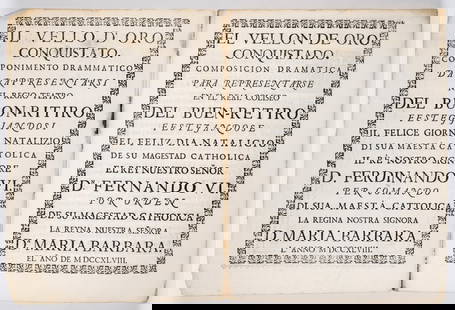 IL VELLO D'ORO
CONQUISTATO.
COMPONIMENTO DRAMMATICO
DA
RAPPRESENTARSI
NEL REGIO TEATRO
DEL BUON-RITIRO
FESTEGGIANDOSI
IL FELICE GIORNO
NATALIZIO
DI SUA MAESTÀ CATTOLICA
IL RE NOSTRO SIGNORE
D. FERDINANDO VI.
PER COMANDO
DI SUA MAESTÀ CATTOLICA
LA REGINA NOSTRA SIGNORA
D. MARIA BARBARA
L'ANNO M DCCXLVIII.
EL VELLON DE ORO
CONQUISTADO.
COMPOSICION DRAMATICA
PARA REPRESENTARSE
EN EL REAL COLISEO
DEL BUEN-RETIRO
FESTEJANDOSE
EL FELIZ DIA NATALICIO
DE SU MAGESTAD CATHOLICA
EL REY NUESTRO SEÑOR
Dⁿ FERNANDO VI.
POR ORDEN
DE SU MAGESTAD CATHOLICA
LA REYNA NUESTRA SEÑORA
Dª MARIA BARBARA
EL AÑO DE M DCCXLVIII.